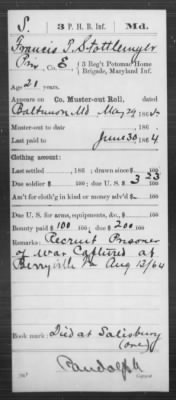 S. 3 P. H. B. Inf. Md.
Francis P. Stottlemyer
Pvt., Co. E, 3 Reg't Potomac Home
Brigade, Maryland Inf.
Age 21 years.
Appears on Co. Muster-out Roll, dated
Baltimore, Md May 29, 1865.
Muster-out to date , 186 .
Last paid to June 30, 1864
Clothing account:
Last settled , 186 ; drawn since $ 100
Due soldier $ 100; due U. S. $ 3 23 100
Am't for cloth'g in kind or money adv'd $ 100
Due U. S. for arms, equipments, &c., $ 100
Bounty paid $ 100 100; due $ 200 100
Remarks: Recruit Prisoner
of War Captured at
Berryville Va Aug 13/64
Book mark: Died at Salisbury
Randolph
Copyist.